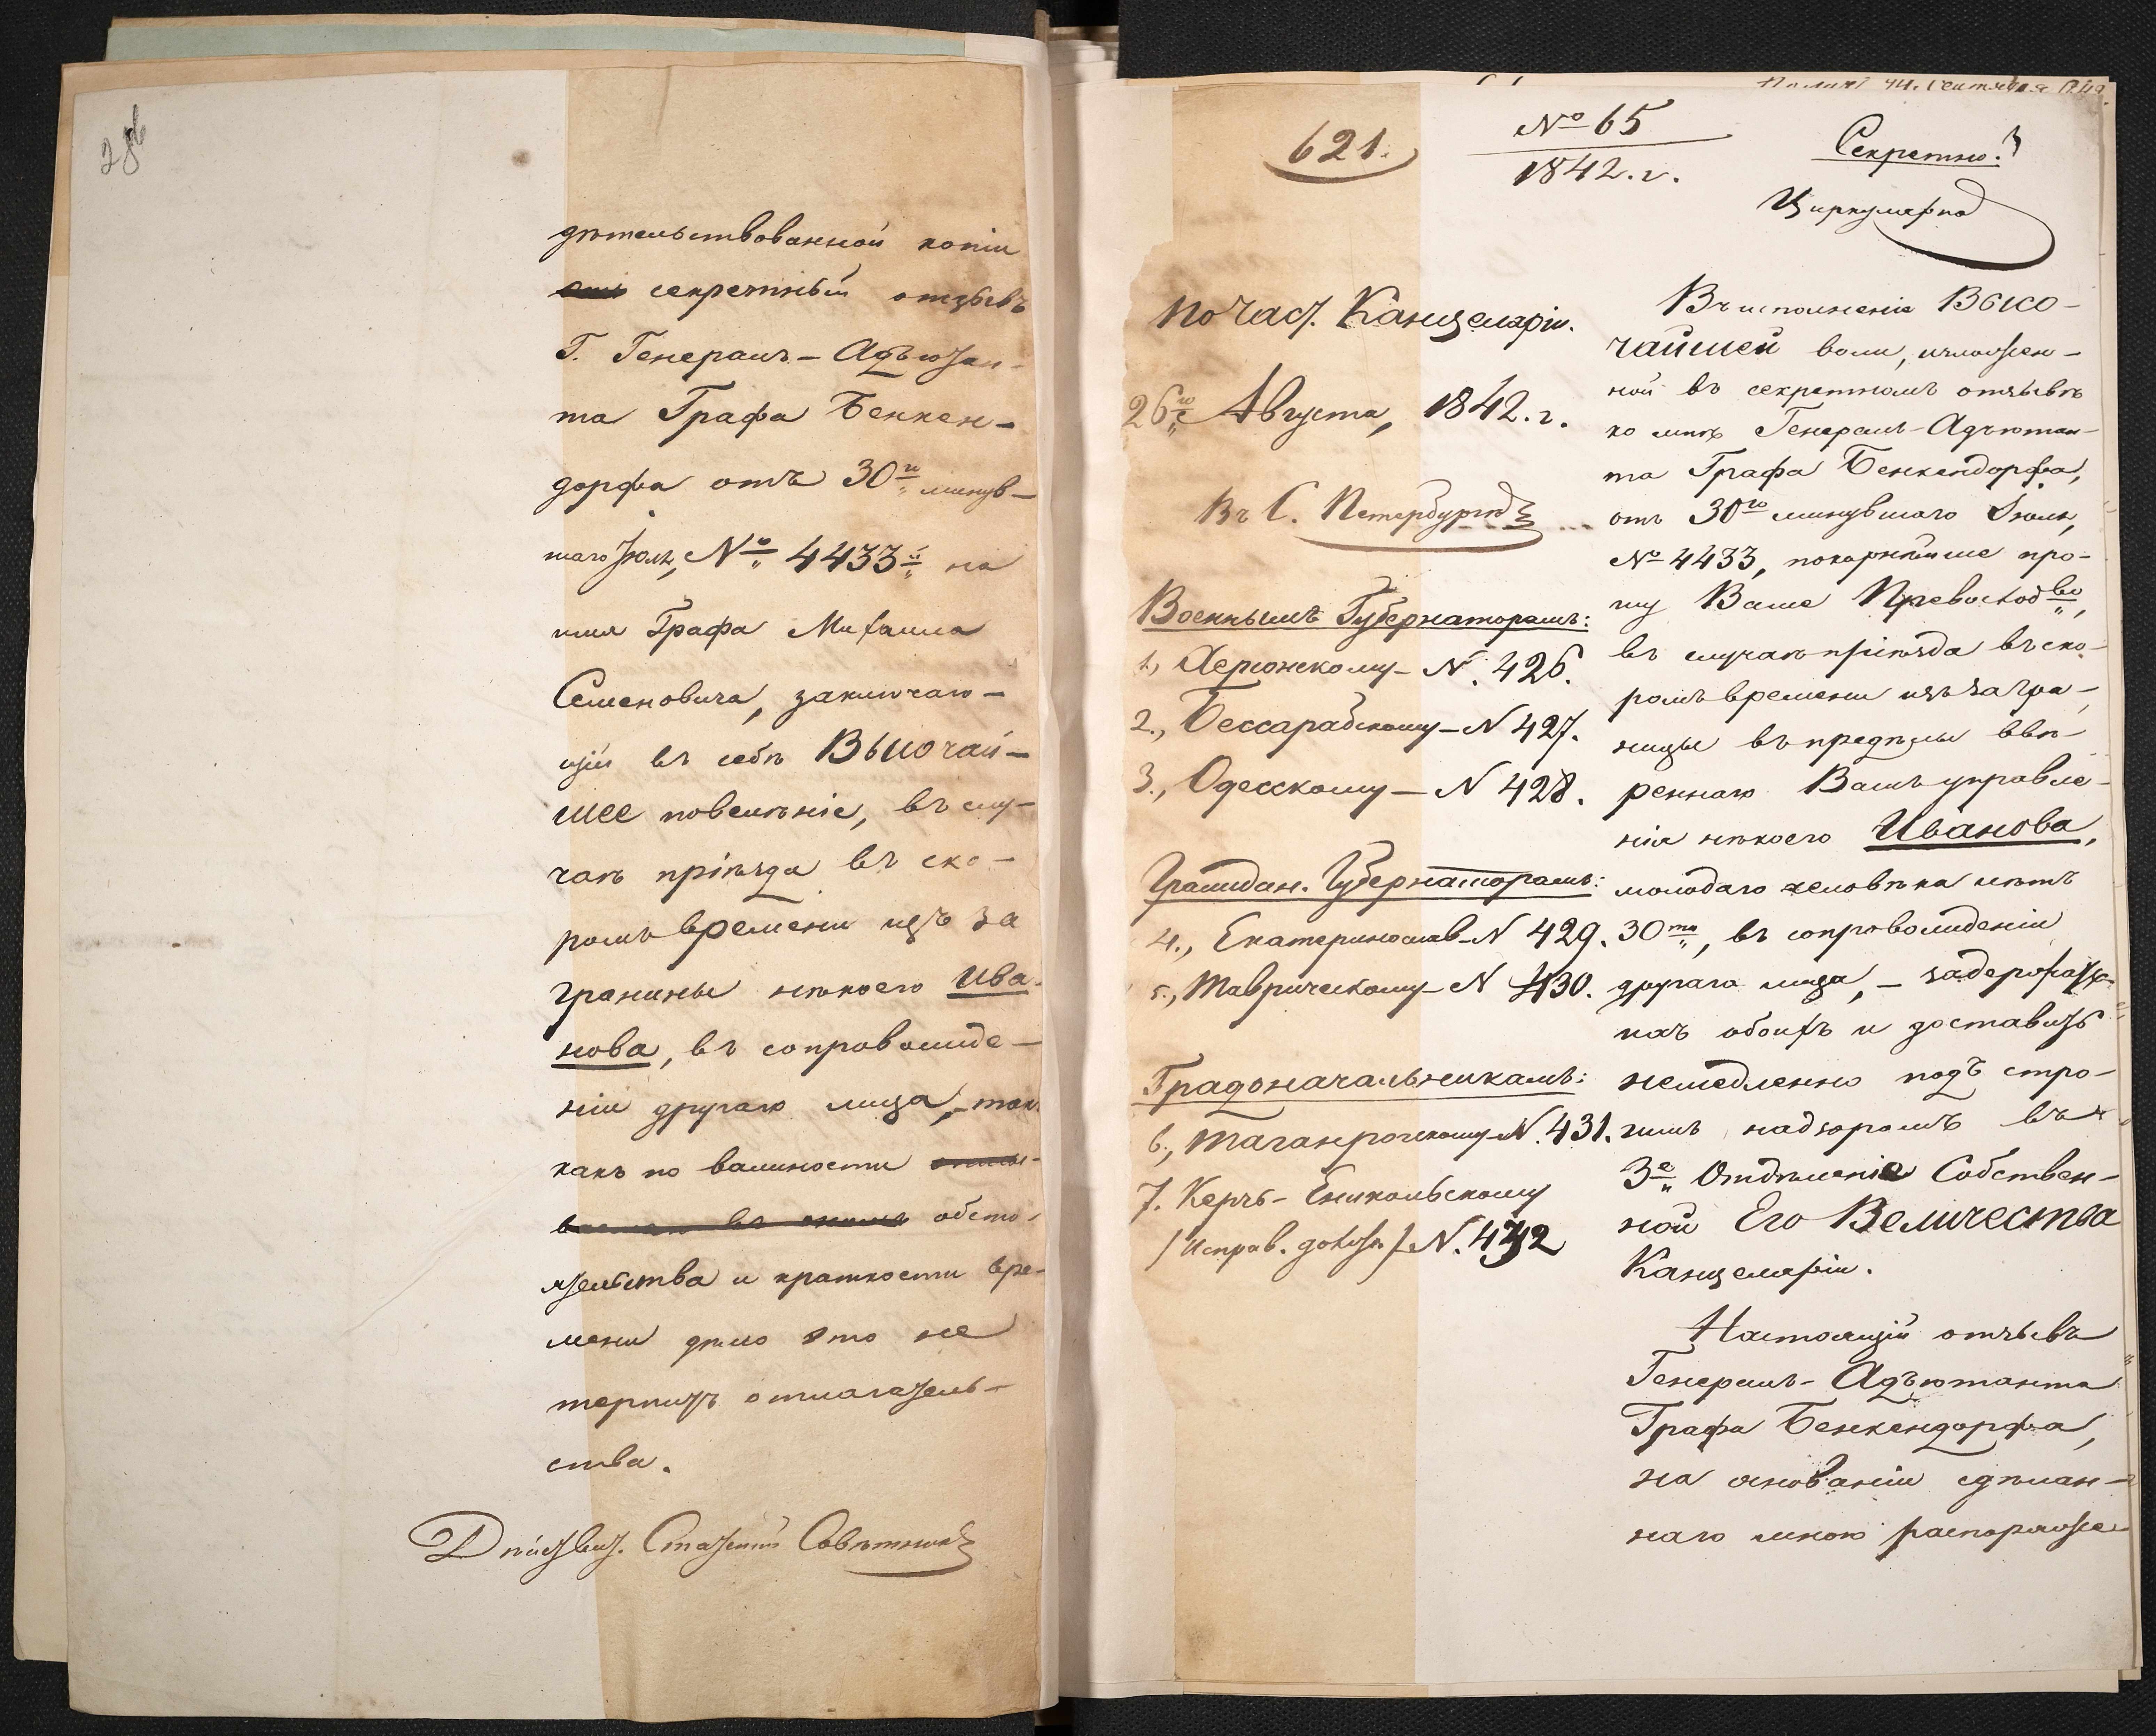 дѣтельствованной копіи
секретный отзывъ
Г. Генералъ-Адъютан-
та Графа Бенкен-
дорфа отъ 30го минув-
шаго Іюля, № 4433й на
имя Графа Михаила
Семеновича, заключаю-
щій въ себѣ Высочай-
шее повелѣніе, въ слу-
чаѣ пріѣзда въ ско-
ромъ времени изъ за
границы нѣкоего Ива-
нова, въ сопровожде-
ніи другаго лица, - такъ
какъ по важности
въ обсто-
ятельства и краткости вре-
мени дѣло это не
терпитъ отлагатель-
ства.
Дѣйствит. Статскій Совѣтникъ
621.
№ 65
1842. г.
Секретно.
Циркулярно
По част. Канцеляріи.
26го Августа, 1842. г.
Въ С. Петербургѣ
Военнымъ Губернаторамъ:
1., Херсонскому - N. 426.
2., Бессарабскому - N 427.
3., Одесскому - N 428.
Граждан. Губернаторамъ:
4., Екатеринослав - N 429.
5., Таврическому - N 430.
Градоначальникамъ:
6., Таганрогскому - N. 431.
7. Керчь-Еникольскому
/Исправ. должн./ N. 432
Въ исполненіе Высо-
чайшей воли, изложен-
ной въ секретномъ отзывѣ
ко мнѣ Генералъ-Адъютан-
та Графа Бенкендорфа,
отъ 30го минувшаго Іюля,
№ 4433, покорнѣйше про-
шу Ваше Превосходво,
въ случаѣ пріѣзда въ ско-
ромъ времени изъ загра-
ницы въ предѣлы ввѣ-
реннаго Вамъ управле-
нія нѣкоего Иванова,
молодаго человѣка лѣтъ
30ти, въ сопровожденіи
другаго лица, - задержать
ихъ обоихъ и доставить
немедленно подъ стро-
гимъ надзоромъ въ
3е Отдѣленіе Собствен-
ной Его Величества
Канцеляріи.
Настоящій отзывъ
Генералъ-Адъютанта
Графа Бенкендорфа,
на основаніи сдѣлан-
наго мною распоряже-